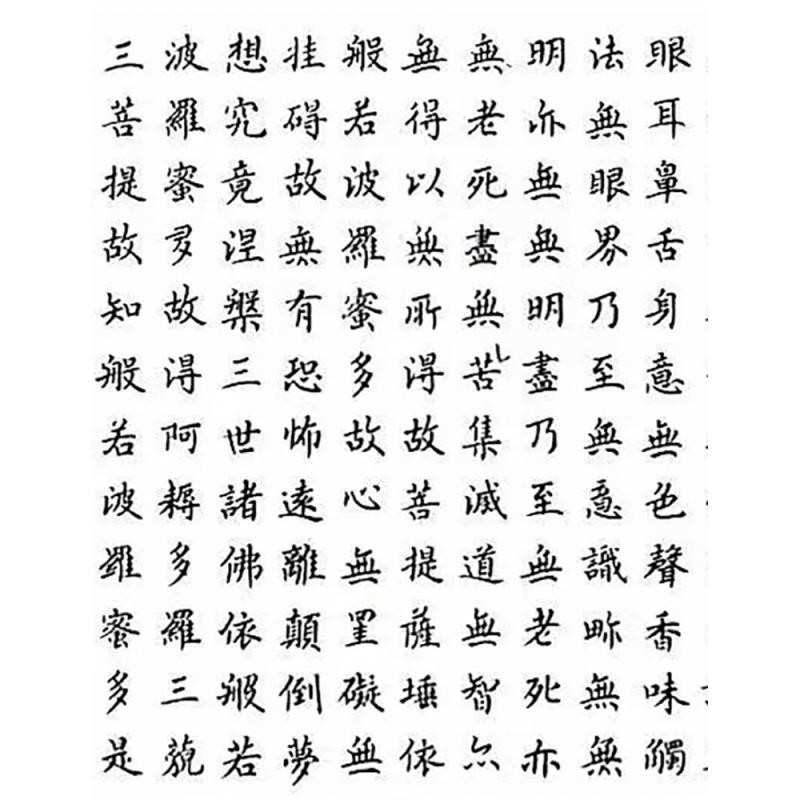 眼耳鼻舌身意無色聲香味觸
法無眼界乃至無意識畍無無
明亦無無明盡乃至無老死亦
無老死盡無苦集滅道無智亦
無得以無所得故菩提薩埵依
般若波羅蜜多故心無罣礙無
挂碍故無有恐怖遠離顛倒夢
想究竟涅槃三世諸佛依般若
波羅蜜多故得阿耨多羅三藐
三菩提故知般若波羅蜜多是